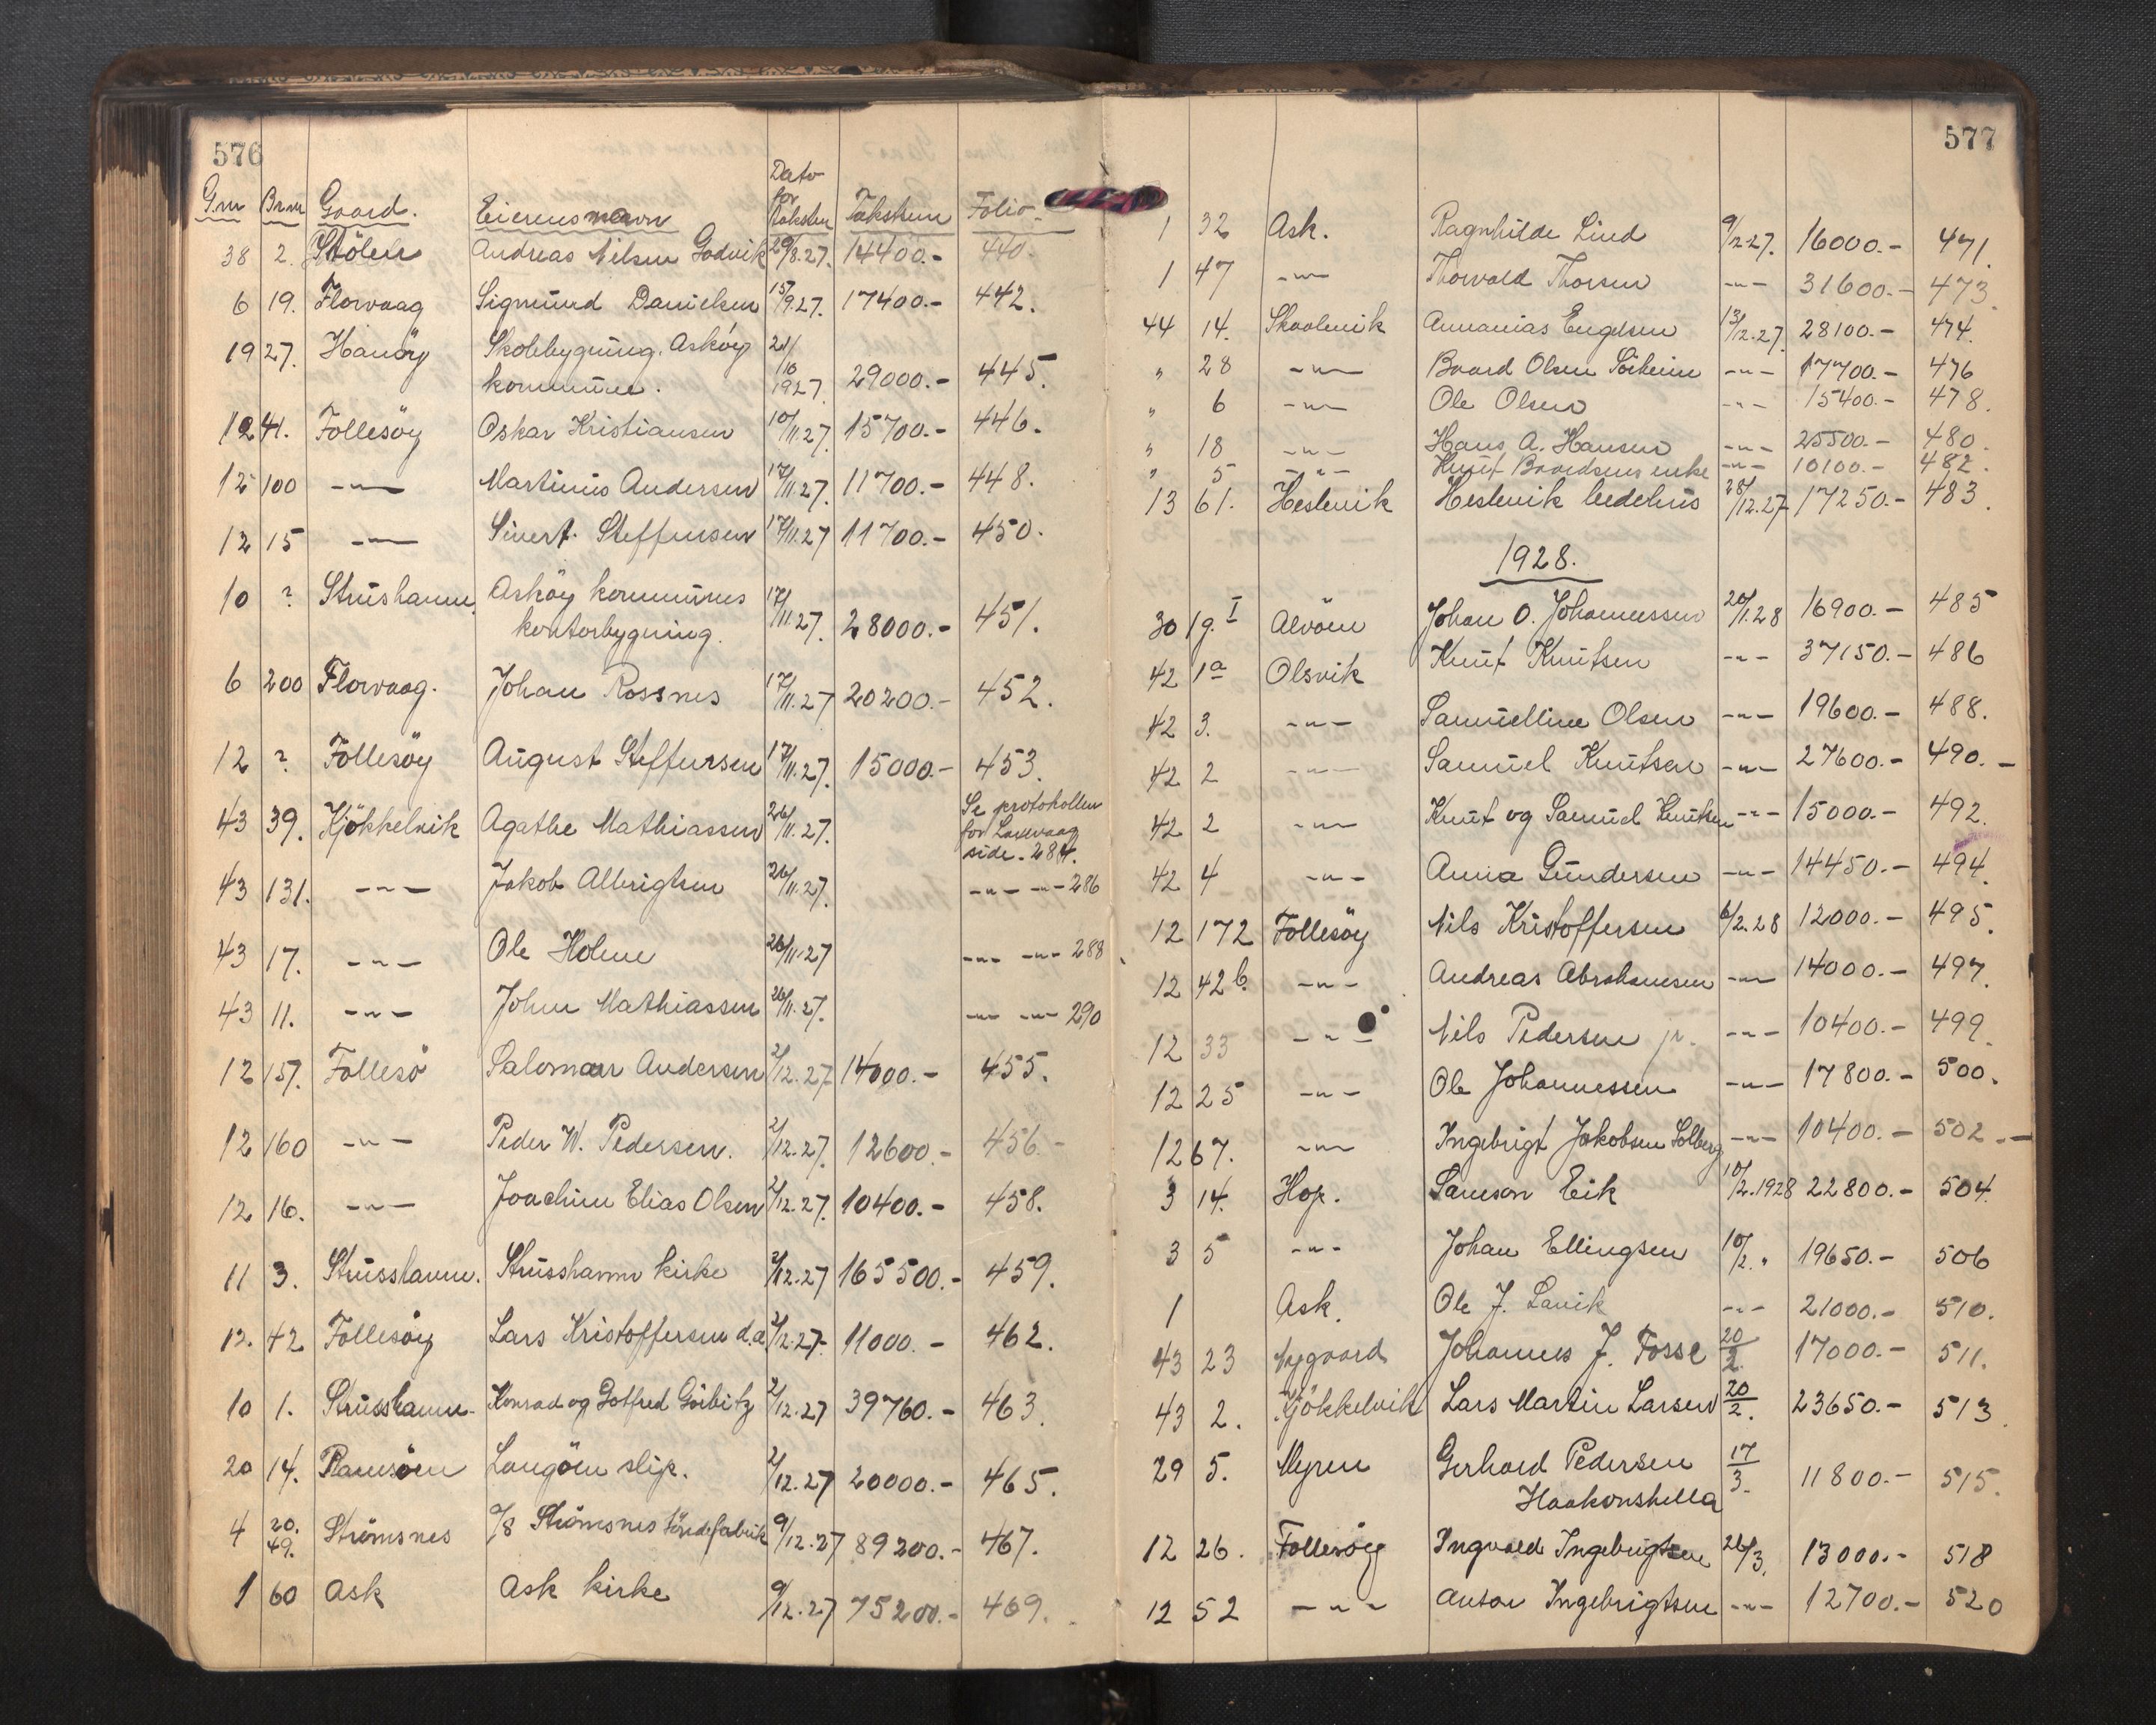 576
Gnr Bnr Gaard. Eierens navn Dato for Taksten Taksten Folio
38 2. Stölen Andreas Nilsen Godvik 29/8.27. 14400.- 440.
6 19. Florvaag Sigmund Danielsen 15/9.27. 17400.- 442.
19 27. Hanöy Skolebygning. Asköy 21/10
kommune. 1927. 29000.- 445.
12 41. Follesöy Oskar Kristiansen 10/11.27. 15700.- 446.
12 100 -"- Martinus Andersen 17/11.27. 11700.- 448.
12 15 -"- Sivert Steffensen 17/11.27 11700.- 450.
10 ? Strushamn. Asköy kommunes 17/11.27. 28000.- 451.
kontorbygning.
6 200 Florvaag. Johan Rossnes 17/11.27 20200.- 452.
12 ? Follesöy August Steffensen 17/11.27. 15000.- 453.
43 39. Kjökkelvik Agathe Mathiassen 26/11.27. Se protokollen
for Laxevaag
side. 284.
43 131. -"- Jakob Albrigtsen 26/11.27. -"- -"- 286
43 17. -"- Ole Holme 26/11.27 -"- -"- 288
43 11. -"- John Mathiassen 26/11.27. -"- -"- 290
12 157. Follesö Salomon Andersen 2/12.27 14000.- 455.
12 160 -"- Peder W. Pedersen. 2/12.27. 12600.- 456.-
12 16. -"- Joachim Elias Olsen 2/12.27. 10400.- 458.
11 3. Strusshamn. Strusshamn kirke 2/12.27 165500.- 459.
12. 42 Follesöy Lars Kristoffersen d.a. 2/12.27. 11000.- 462.
10 1. Strusshamn. Konrad og Gotfred Görbitz 2/12.27 39760.- 463.
20 14. Ramsöen Langöen slip. 2/12.27 20000.- 465.
4 20. 49. Strömsnes A/S Strömsnes töndefabrik 9/12.27 89200.- 467.
1 60 Ask Ask kirke 9/12.27 75200.- 469.
577
1 32 Ask. Ragnhilde Lind 9/12.27. 16000.- 471.
1 47 -"- Thorvald Thorsen -"- 31600.- 473.
44 14. Skaalevik Annanias Engelsen 13/12.27. 28100.- 474.
" 28 -"- Baard Olsen -"- 17700.- 476
" 6 -"- Ole Olsen -"- 15400.- 478.
" 18 -"- Hans A. Hansen -"- 25500.- 480.
" 5 -"- Knut Baardsens enke -"- 10100.- 482.
13 61. Heslevik Heslevik bedehus 28/12.27 17250.- 483.
1928.
30 19. I Alvöen Johan O. Johannessen 20/1.28 16900.- 485
42 1a Olsvik Knut Knutsen -"- 37150.- 486
42 3. -"- Samueline Olsen -"- 19600.- 488.
42 2 -"- Samuel Knutsen -"- 27600.- 490.-
42 2 -"- Knut og Samuel Knutsen -"- 15000.- 492.
42 4 -"- Anna Gundersen -"- 14450.- 494.
12 172 Follesöy Nils Kristoffersen 6/2.28 12000.- 495.
12 42b. -"- Andreas Abrahamsen -"- 14000.- 497.
12 33 -"- Nils Pedersen jr. -"- 10400.- 499.
12 25 -"- Ole Johannessen -"- 17800.- 500.
12 67. -"- Ingebrigt Jakobsen Solberg -"- 10400.- 502.-
3 14. Hop. Samson Eik 10/2.1928 22800.- 504.
3 5 -"- Johan Ellingsen 10/2. " 19650.- 506
1 Ask. Ole J. Lavik -"- 21000.- 510.
43 23 Nygaard Johannes J. Fosse 20/2. 17000.- 511.
43 2. Kjökkelvik Lars Martin Larsen 20/2. 23650.- 513.
29 5. Myren Gerhard Pedersen 17/3. 11800.- 515.
Haakonshella
12 26. Follesöy Ingvald Ingebrigtsen 26/3. 13000.- 518
12 52 -"- Anton Ingebrigtsen -"- 12700.- 520